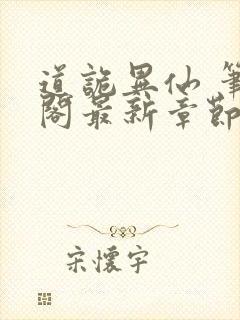 道詭異仙 筆
閣最新章節
宋懷宇